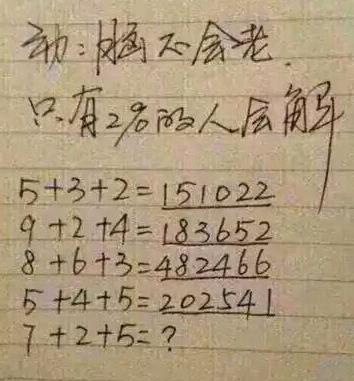 动:脑不会老.
只有2%的人会解
5+3+2=151022
9+2+4=183652
8+6+3=482466
5+4+5=202541
7+2+5=?